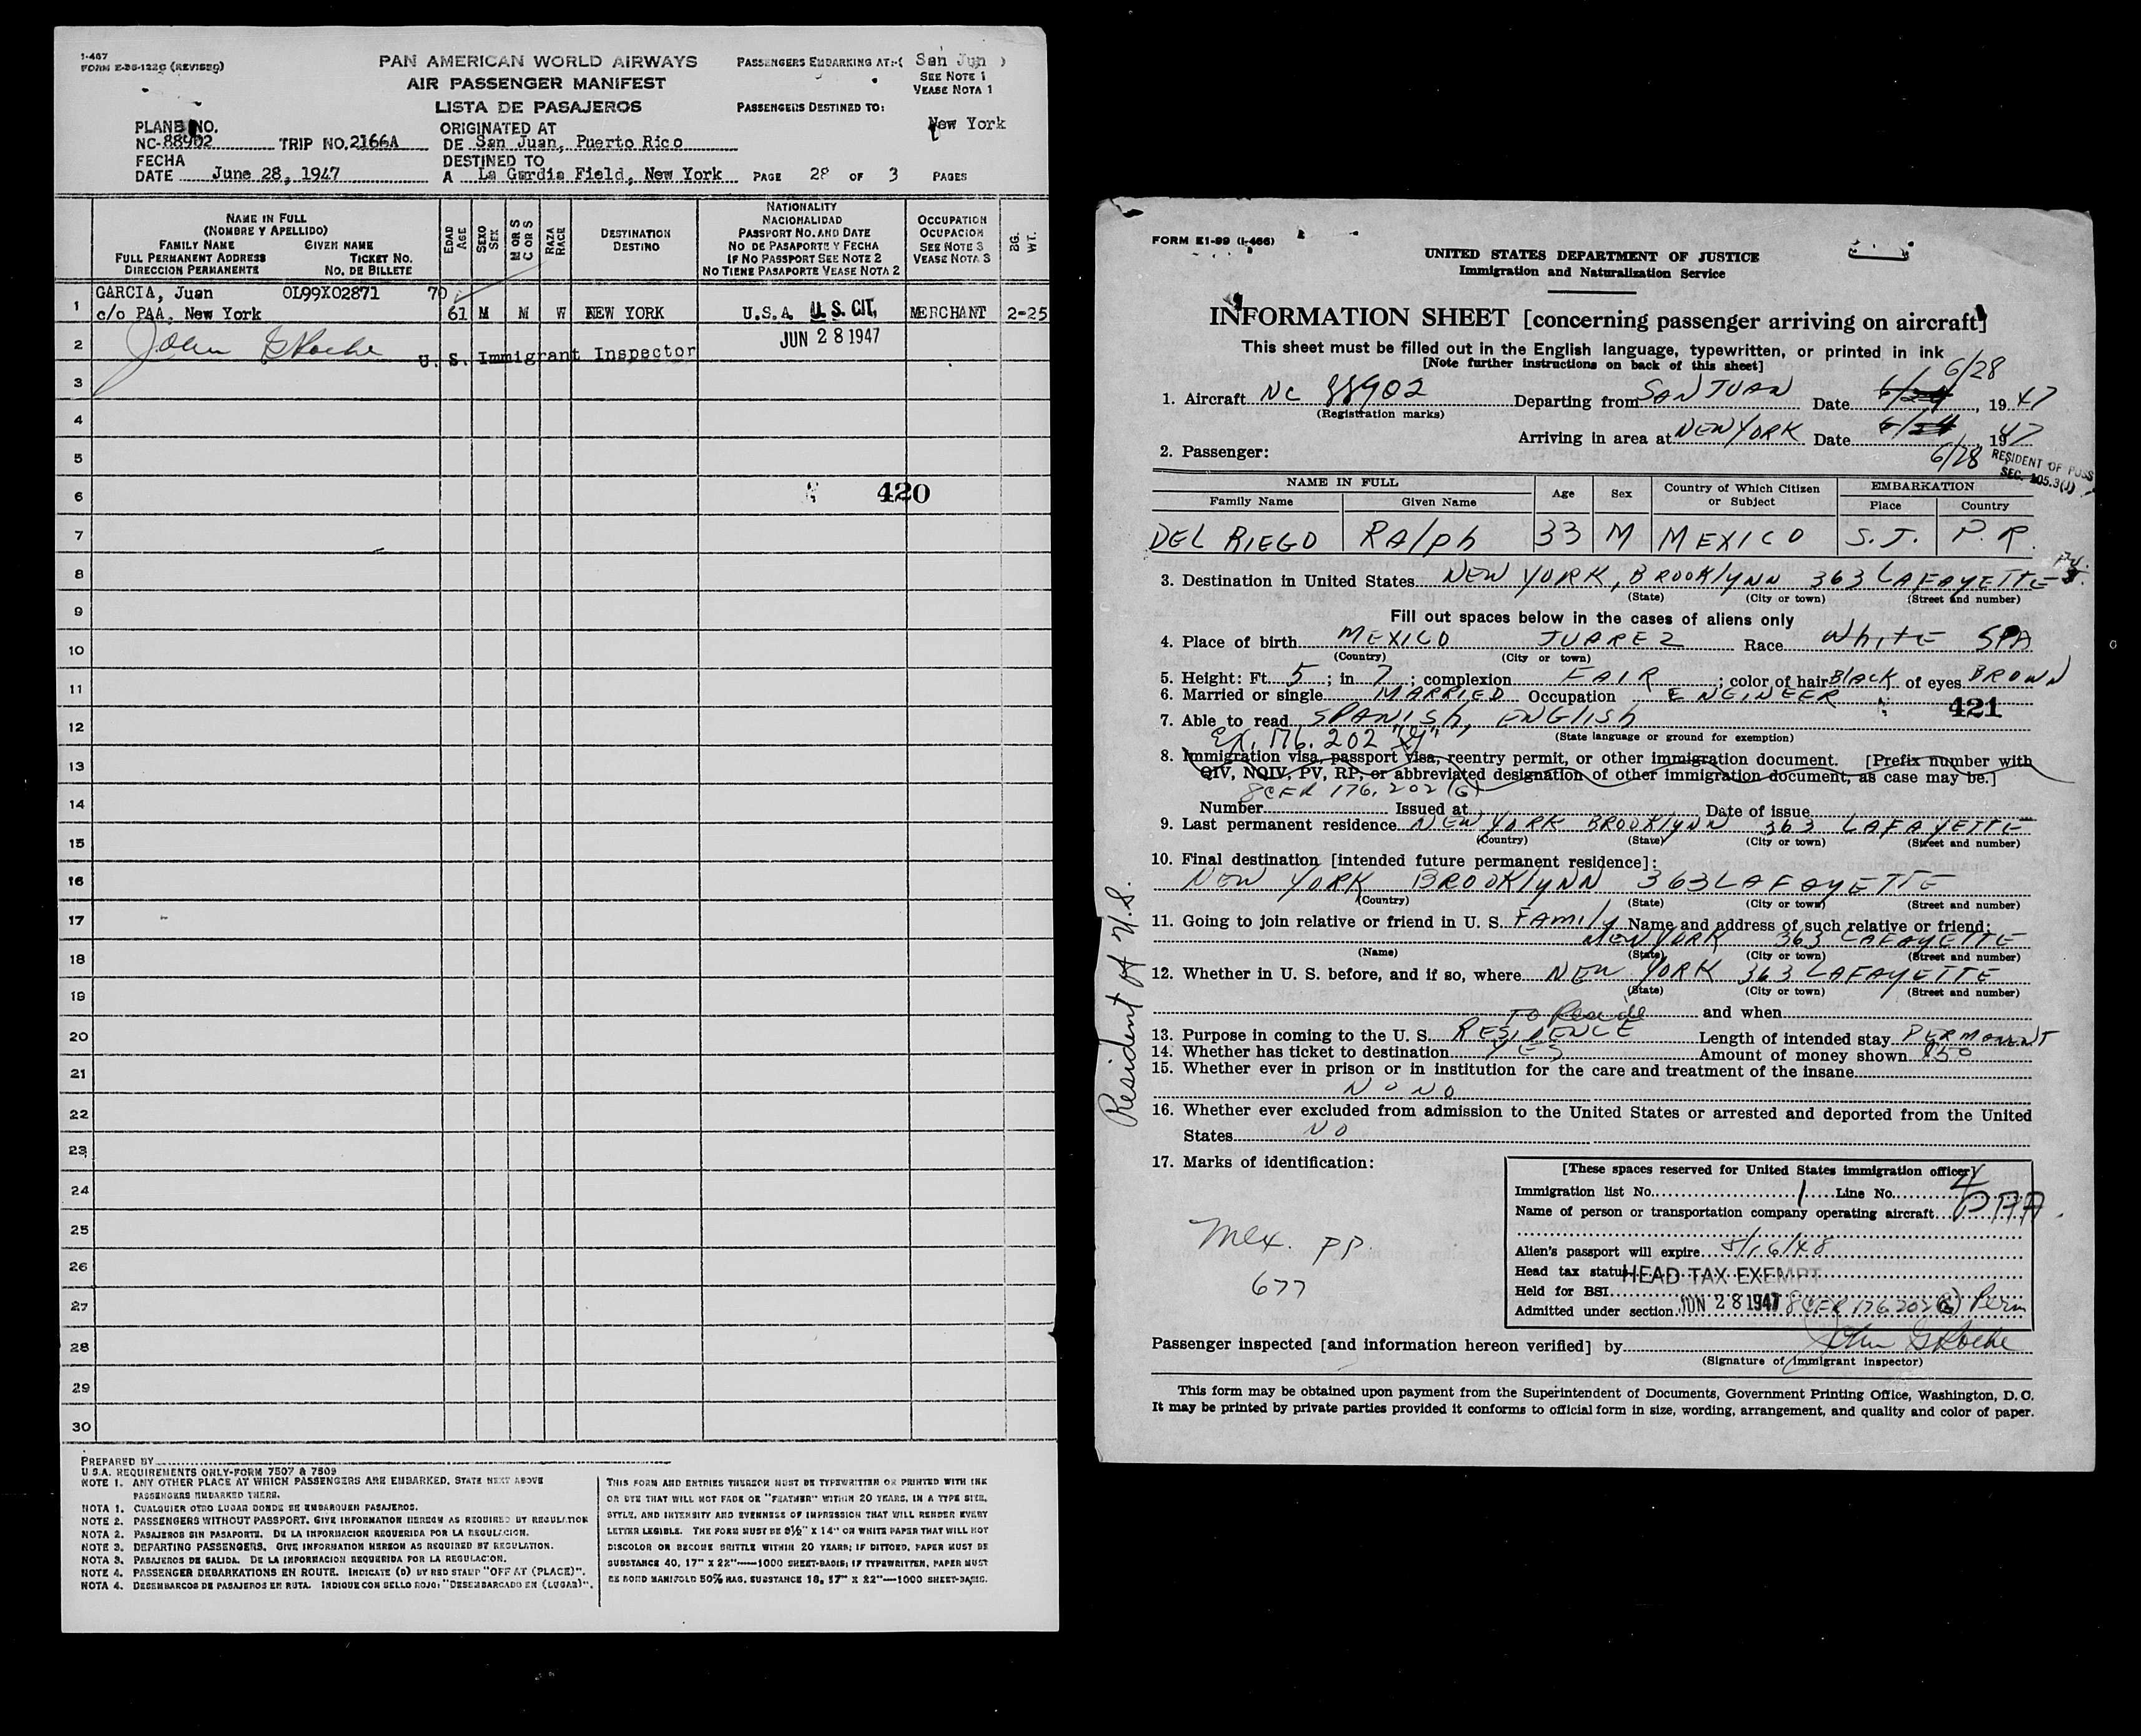 I-467
FORM E-36-122C (REVISED)
PAN AMERICAN WORLD AIRWAYS
AIR PASSENGER MANIFEST
LISTA DE PASAJEROS
PASSENGERS EMBARKING AT:-( San Jun )
SEE NOTE 1
VEASE NOTA 1
PASSENGERS DESTINED TO:
New York
PLANE NO.
NC-88902 TRIP NO. 2166A
ORIGINATED AT
DE San Juan, Puerto Rico
FECHA
DATE June 28, 1947
DESTINED TO
A La Gardia Field, New York PAGE 28 OF 3 PAGES
NAME IN FULL
(NOMBRE Y APELLIDO)
FAMILY NAME GIVEN NAME
FULL PERMANENT ADDRESS TICKET NO.
DIRECCION PERMANENTE NO. DE BILLETE
EDAD AGE
SEXO SEX
M OR S
C OR S
RAZA RACE
DESTINATION
DESTINO
NATIONALITY
NACIONALIDAD
PASSPORT NO. AND DATE
NO DE PASAPORTE Y FECHA
IF NO PASSPORT SEE NOTE 2
NO TIENE PASAPORTE VEASE NOTA 2
OCCUPATION
OCUPACION
SEE NOTE 3
VEASE NOTA 3
BG. WT.
GARCIA, Juan OL99X02871 70
1 c/o PAA, New York 61 M M W NEW YORK U.S.A. U. S. CIT. MERCHANT 2-25
2 JUN 28 1947
U. S. Immigrant Inspector
3
4
5
6 420
7
8
9
10
11
12
13
14
15
16
17
18
19
20
21
22
23
24
25
26
27
28
29
30
PREPARED BY
U.S.A. REQUIREMENTS ONLY-FORM 7507 & 7509
NOTE 1. ANY OTHER PLACE AT WHICH PASSENGERS ARE EMBARKED, STATE NEXT ABOVE
PASSENGERS EMBARKED THERE.
NOTA 1. CUALQUIER OTRO LUGAR DONDE SE EMBARQUEN PASAJEROS.
NOTE 2. PASSENGERS WITHOUT PASSPORT. GIVE INFORMATION HEREON AS REQUIRED BY REGULATION
NOTA 2. PASAJEROS SIN PASAPORTE. DE LA INFORMACION REQUERIDA POR LA REGULACION.
NOTE 3. DEPARTING PASSENGERS. GIVE INFORMATION HEREON AS REQUIRED BY REGULATION.
NOTA 3. PASAJEROS DE SALIDA. DE LA INFORMACION REQUERIDA POR LA REGULACION.
NOTE 4. PASSENGER DEBARKATIONS EN ROUTE. INDICATE (D) BY RED STAMP "OFF AT (PLACE)".
NOTA 4. DESEMBARCOS DE PASAJEROS EN RUTA. INDIQUE CON SELLO ROJO: "DESEMBARCADO EN (LUGAR)".
THIS FORM AND ENTRIES THEREON MUST BE TYPEWRITTEN OR PRINTED WITH INK
OR DYE THAT WILL NOT FADE OR "FEATHER" WITHIN 20 YEARS, IN A TYPE SIZE,
STYLE, AND INTENSITY AND EVENNESS OF IMPRESSION THAT WILL RENDER EVERY
LETTER LEGIBLE. THE FORM MUST BE 8½" X 14" ON WHITE PAPER THAT WILL NOT
DISCOLOR OR BECOME BRITTLE WITHIN 20 YEARS; IF DITTOED, PAPER MUST BE
SUBSTANCE 40, 17" X 22"—1000 SHEET-BASIS; IF TYPEWRITTEN, PAPER MUST
BE BOND MANIFOLD 50% RAG, SUBSTANCE 18, 17" X 22"—1000 SHEET-BASIS.
FORM E1-99 (I-466)
UNITED STATES DEPARTMENT OF JUSTICE
Immigration and Naturalization Service
INFORMATION SHEET [concerning passenger arriving on aircraft]
This sheet must be filled out in the English language, typewritten, or printed in ink
[Note further instructions on back of this sheet]
6/28
1. Aircraft NC 88902 Departing from SAN JUAN Date 6/24, 1947
(Registration marks)
Arriving in area at NEW YORK Date 6/24, 1947
6/28
2. Passenger:
RESIDENT OF POSS
SEC. 105.3(J)
NAME IN FULL Age Sex Country of Which Citizen or Subject EMBARKATION
Family Name Given Name Place Country
DEL RIEGO RAlph 33 M MEXICO S.J. P.R.
3. Destination in United States NEW YORK, BROOKlyNN 363 LAFAyETTE
(State) (City or town) (Street and number)
Fill out spaces below in the cases of aliens only
4. Place of birth MEXICO JUAREZ Race WhITE SPA
(Country) (City or town)
5. Height: Ft. 5; in 7; complexion FAIR; color of hair BlACK of eyes BROWN
6. Married or single MARRIED Occupation ENGINEER
421
7. Able to read SPANISh, ENGlISh
(State language or ground for exemption)
Ex. 176.202 "G"
8. Immigration visa, passport visa, reentry permit, or other immigration document. [Prefix number with
QIV, NQIV, PV, RP, or abbreviated designation of other immigration document, as case may be.]
8 CFR 176.202 (G)
Number Issued at Date of issue
9. Last permanent residence NEW YORK BROOKlyNN 363 LAFAYETTE
(Country) (State) (City or town) (Street and number)
10. Final destination [intended future permanent residece]:
NEW YORK BROOKlyNN 363 LAFAyETTE
(Country) (State) (City or town) (Street and number)
11. Going to join relative or friend in U. S. FAMIly Name and address of such relative or friend:
NEW YORK 363 LAFAyETTE
(Name) (State) (City or town) (Street and number)
12. Whether in U. S. before, and if so, where NEW YORK 363 LAFAyETTE
(State) (City or town) (Street and number)
To Reside and when
13. Purpose in coming to the U. S. RESIDENCE Length of intended stay PERMONENT
14. Whether has ticket to destination YES Amount of money shown $50
15. Whether ever in prison or in institution for the care and treatment of the insane
NO NO
16. Whether ever excluded from admission to the United States or arrested and deported from the United
States NO
Resident of U.S.
17. Marks of identification:
Mex. PP.
677
[These spaces reserved for United States immigration officer]
Immigration list No. 1 Line No. 4
Name of person or transportation company operating aircraft PAA.
Alien's passport will expire
Head tax status HEAD TAX EXEMPT
Held for BSI
Admitted under section JUN 28 1947 8 CFR 176.202 (G) Perm
Passenger inspected [and information hereon verified] by
(Signature of immigrant inspector)
This form may be obtained upon payment from the Superintendent of Documents, Government Printing Office, Washington, D. C.
It may be printed by private parties provided it conforms to official form in size, wording, arrangement, and quality and color of paper.